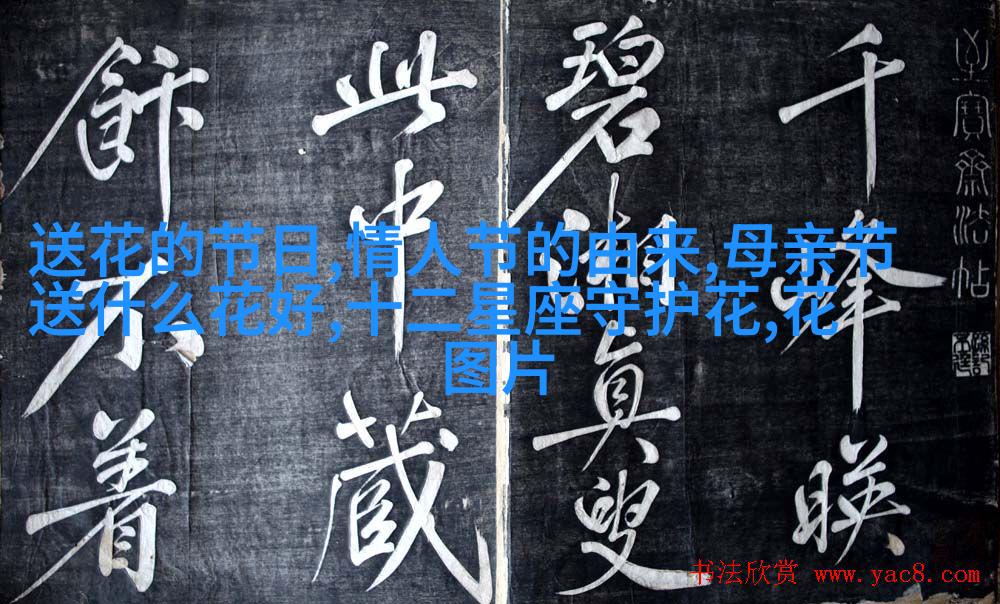 送花的节日,情人节的由来,母亲节
送什么花好,十二星座守护花,花
图片
寶齋法帖
千峰暎
碧湘真叟
此中藏
飰不
书法欣赏 www.yac8.com